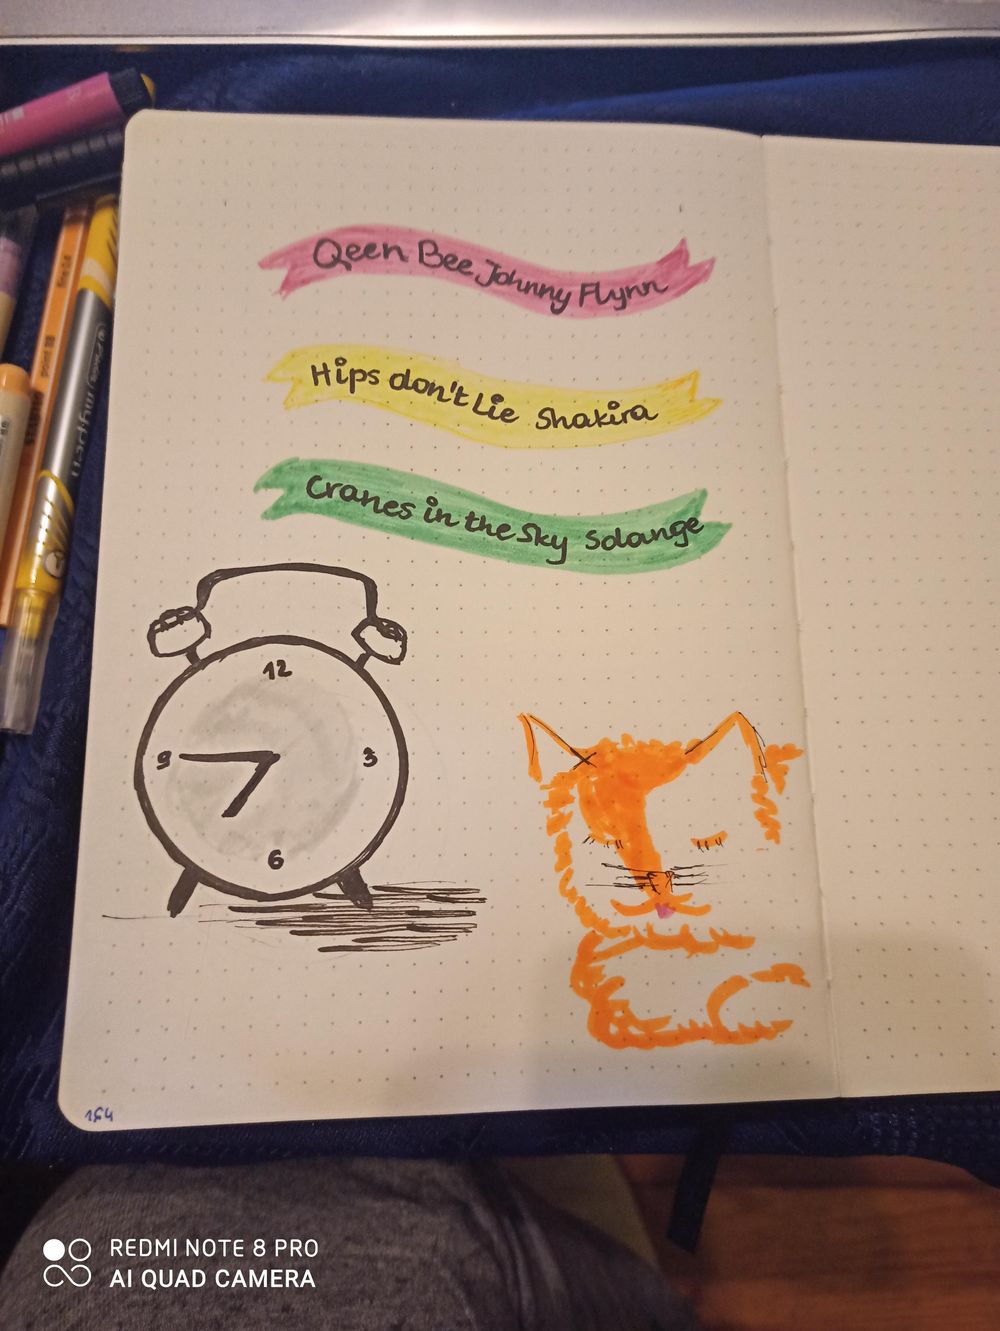 Qeen Bee Johnny Flynn
Hips don't Lie Shakira
Cranes in the Sky Solange
12
9
3
6
164
REDMI NOTE 8 PRO
AI QUAD CAMERA